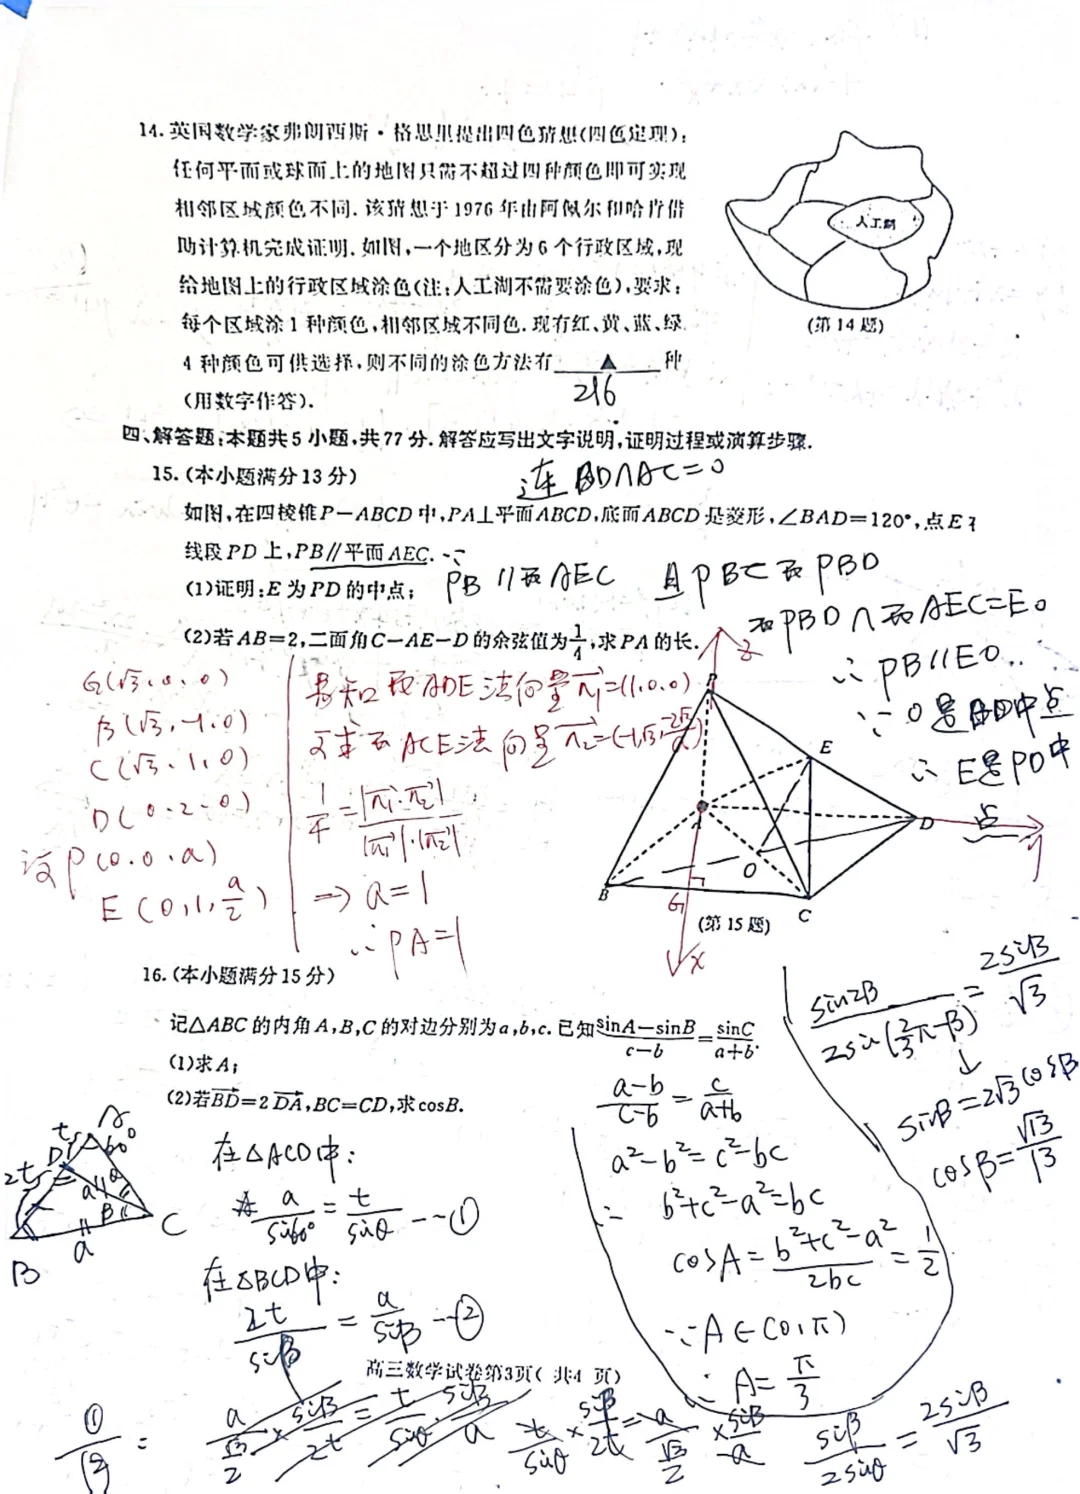 14.英国数学家弗朗西斯·格思里提出四色猜想(四色定理):
任何平面或球面上的地图只需不超过四种颜色即可实现
相邻区域颜色不同.该猜想于1976年由阿佩尔和哈肯借
助计算机完成证明.如图,一个地区分为6个行政区域,现
给地图上的行政区域涂色(注:人工湖不需要涂色),要求:
每个区域涂1种颜色,相邻区域不同色.现有红、黄、蓝、绿
4种颜色可供选择,则不同的涂色方法有 ▲ 种
216
(用数字作答).
人工湖
(第14题)
四、解答题:本题共5小题,共77分.解答应写出文字说明,证明过程或演算步骤.
15.(本小题满分13分)
连BD∩AC=O
如图,在四棱锥P-ABCD中,PA⊥平面ABCD,底面ABCD是菱形,∠BAD=120°,点E在
线段PD上,PB//平面AEC.
∵
(1)证明:E为PD的中点;
PB//面AEC 且PB⊂面PBD
面PBD∩面AEC=EO
(2)若AB=2,二面角C-AE-D的余弦值为1/4,求PA的长.
∴PB//EO
∵O是BD中点
∴E是PD中
点
G(√3,0,0)
B(√3,-1,0)
C(√3,1,0)
D(0,2,0)
设P(0,0,a)
E(0,1,a/2)
易知面ADE法向量n₁=(1,0,0)
可求面ACE法向量n₂=(-1,√3,-2√3/a)
1/4=|n₁·n₂|/|n₁|·|n₂|
⇒a=1
∴PA=1
z
P
E
A
D
y
O
B
G
C
x
(第15题)
16.(本小题满分15分)
记△ABC的内角A,B,C的对边分别为a,b,c.已知(sinA-sinB)/(c-b)=sinC/(a+b).
(1)求A;
(2)若BD=2DA,BC=CD,求cosB.
(a-b)/(c-b)=c/(a+b)
a²-b²=c²-bc
∴b²+c²-a²=bc
cosA=(b²+c²-a²)/2bc=1/2
∵A∈(0,π)
∴A=π/3
A
60°
t
D
2t
a
θ
β
C
a
B
在△ACD中:
a/sin60°=t/sinθ --①
在△BCD中:
2t/sinβ=a/sinB --②
高三数学试卷第3页( 共4 页)
①/② =
t/sinθ×sinβ/2t=a/(√3/2)×sinB/a
sinβ/2sinθ=2sinB/√3
sin2B/2sin(2/3π-B)=2sinB/√3
↓
sinB=2√3cosB
cosB=√13/13